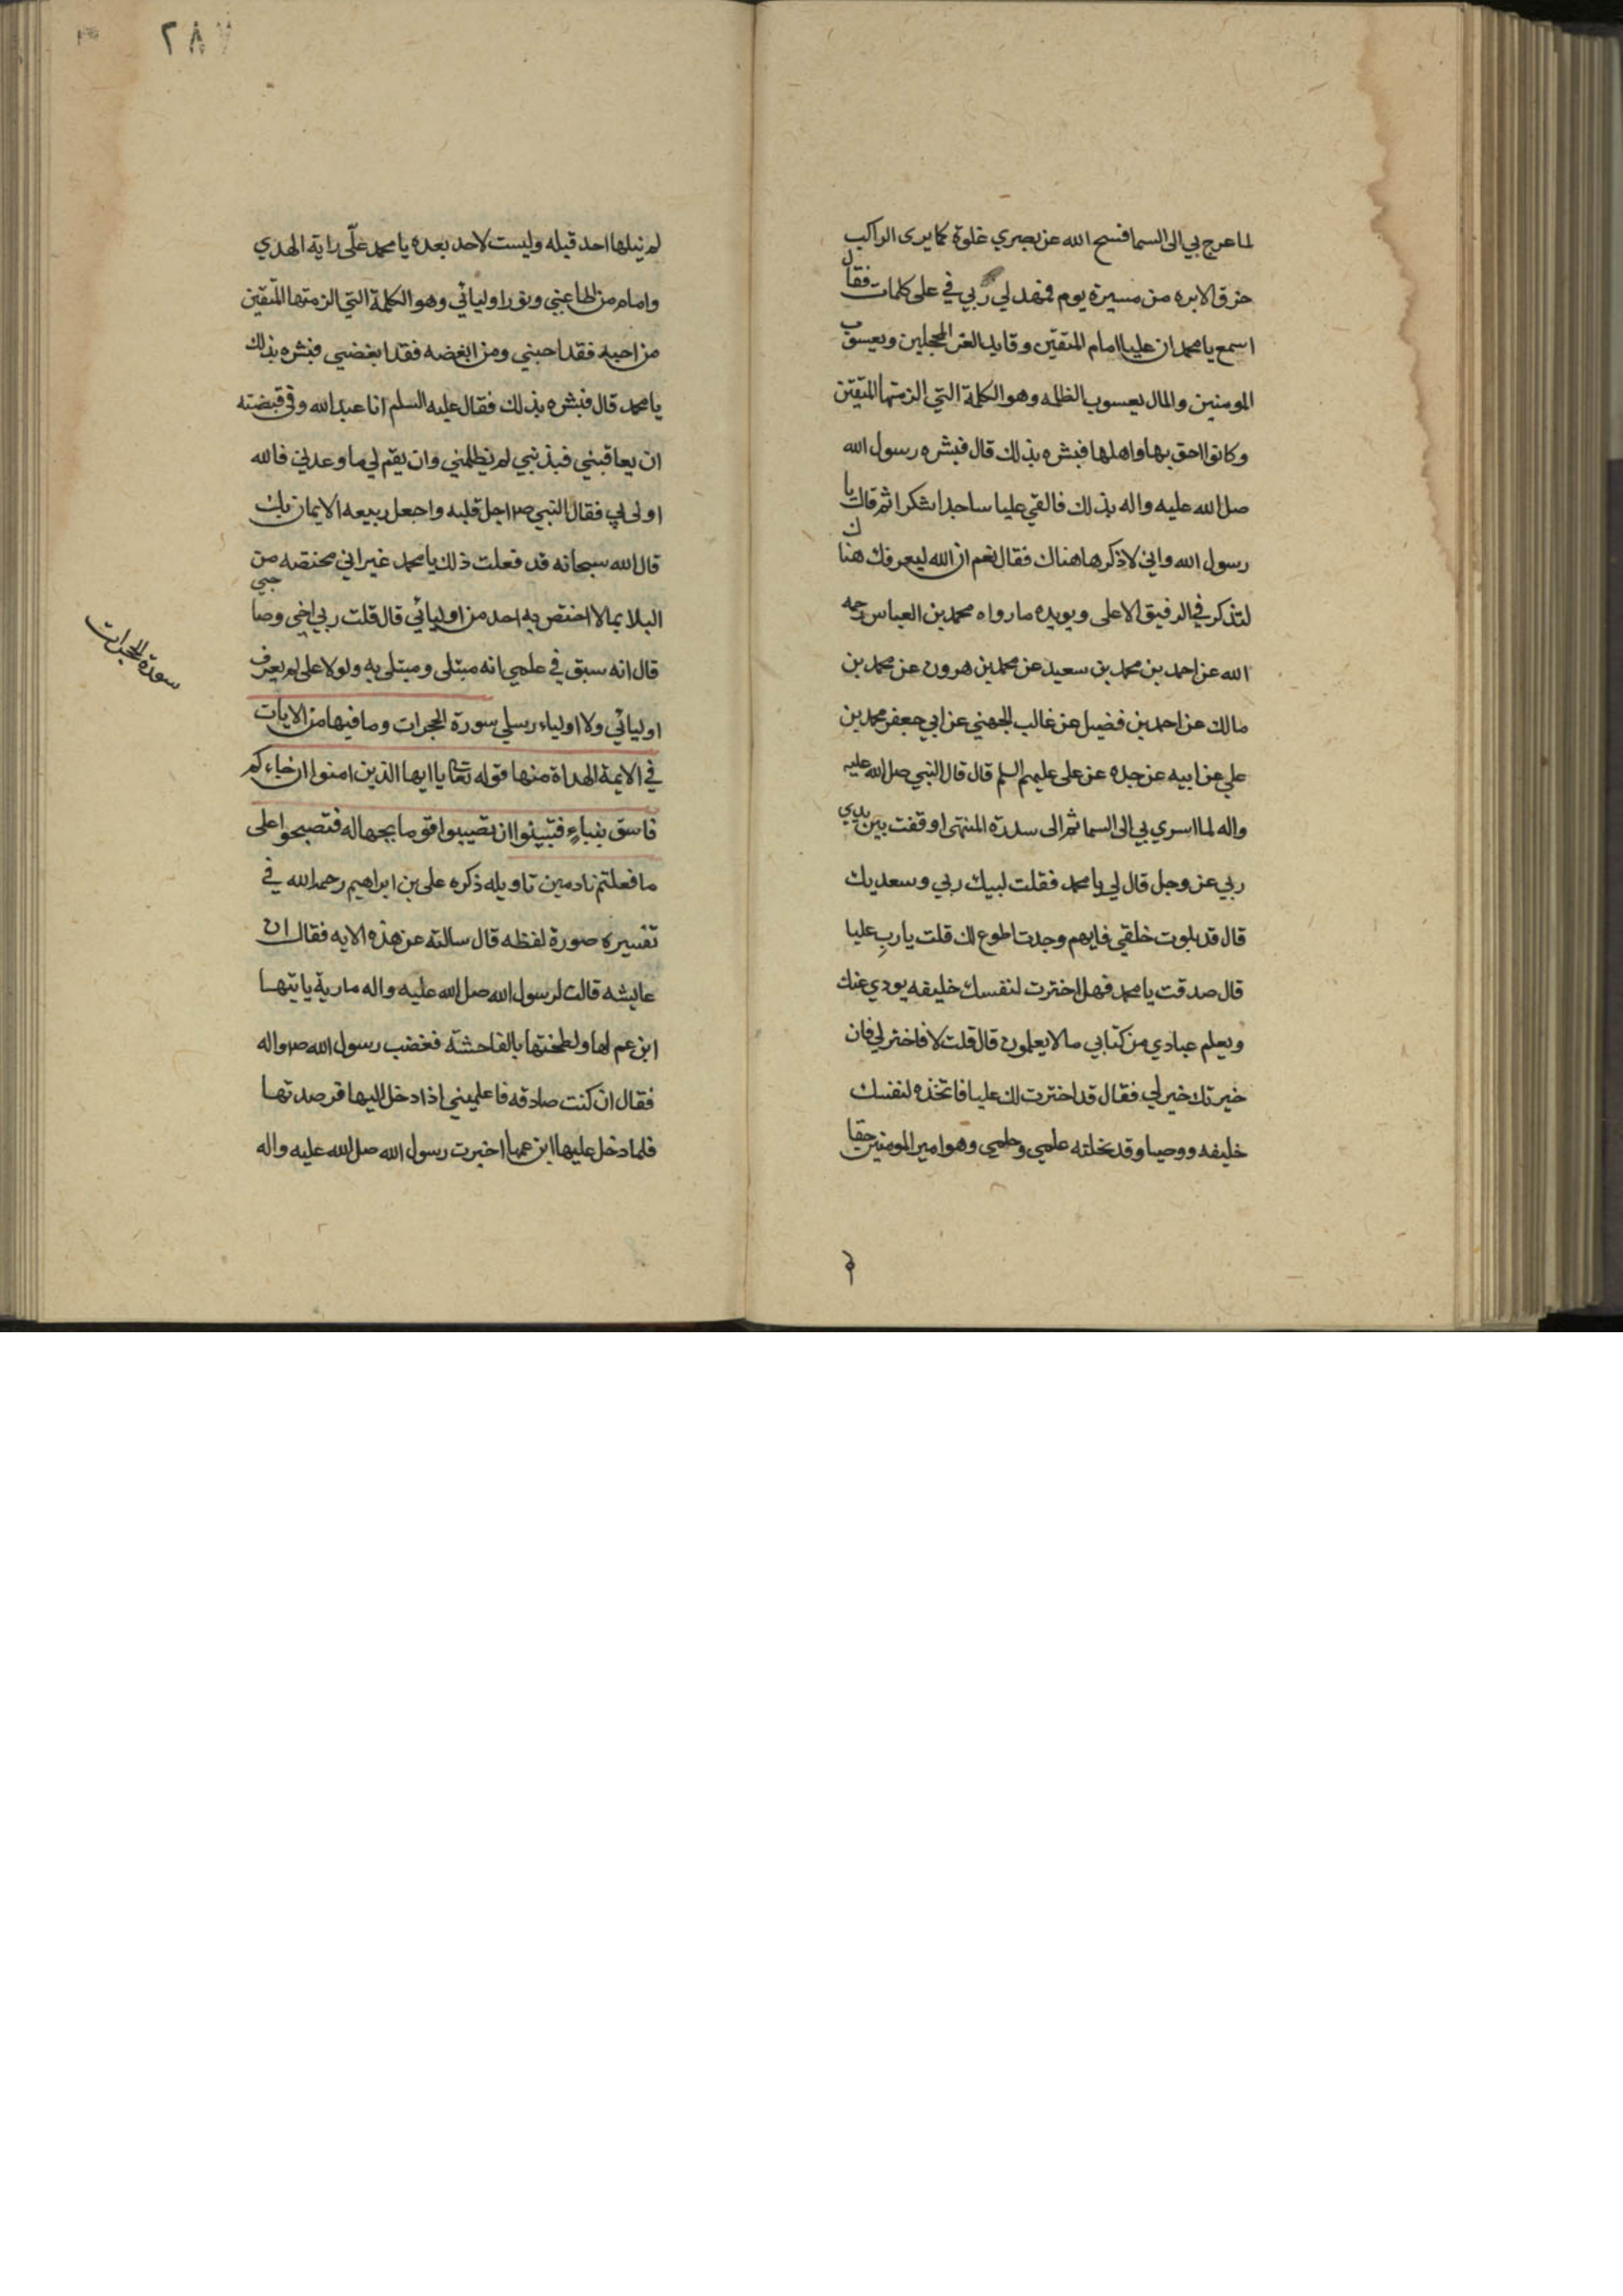 لما عرج بي الى السما فسح الله عز بصري غلوة كما يرى الراكب
خرق الابره من مسيرة يوم فعهد لي ربي في على كلمات فقال
اسمع يا محمد ان عليا امام المتقين وقايد الغر المحجلين ويعسوب
المومنين والمال يعسوب الظلمه وهو الكلمة التي الزمتها المتقين
وكانوا احق بها واهلها فبشره بذلك قال فبشره رسول الله
صلى الله عليه واله بذلك فالقي عليا ساجدا شكرا ثم قال يا
رسول الله واني لاذكرها هناك فقال نعم ان الله ليعرفك هناك
لتذكر في الرفيق الاعلى ويويده ما رواه محمد بن العباس رحمه
الله عن احمد بن محمد بن سعيد عن محمد بن هرون عن محمد بن
مالك عن احمد بن فضيل عن غالب الجهني عن ابي جعفر محمد بن
علي عن ابيه عن جده عن على عليهم السلم قال قال النبي صلى الله عليه
واله لما اسري بي الى السما ثم الى سدرة المنتهى اوقفت بين يدي
ربي عز وجل قال لي يا محمد فقلت لبيك ربي وسعديك
قال قد بلوت خلقي فايهم وجدت اطوع لك قلت يا رب عليا
قال صدقت يا محمد فهل اخترت لنفسك خليفه يودي عنك
ويعلم عبادي من كتابي ما لا يعلمون قال قلت لا فاختر لي فان
خيرتك خير لي فقال قد اخترت لك عليا فاتخذه لنفسك
خليفه ووصيا وقد نحلته علمي وحلمي وهو امير المومنين حقا
٢٨٧
لم ينلها احد قبله وليست لاحد بعده يا محمد علي راية الهدي
وامام من اطاعني ونور اوليائي وهو الكلمة التي الزمتها المتقين
من احبه فقد احبني ومن ابغضه فقد ابغضني فبشره بذلك
يا محمد قال فبشره بذلك فقال عليه السلم انا عبد الله وفي قبضته
ان يعاقبني فبذنبي لم يظلمني وان يقم لي ما وعدني فالله
اولى بي فقال النبي ص اجل قلبه واجعل ربيعه الايمان بك
قال الله سبحانه قد فعلت ذلك يا محمد غير اني مختصه من
البلا بما لا اختص به احد من اوليائي قال قلت ربي اخي وصاحبي
قال انه سبق في علمي انه مبتلى ومبتلى به ولولا على لم يعرف
اوليائي ولا اولياء رسلي سورة الحجرات وما فيها من الايات
في الايمة الهداة منها قوله تعا يا ايها الذين امنوا ان جاءكم
فاسق بنباء فتبينوا ان تصيبوا قوما بجهاله فتصبحوا على
ما فعلتم نادمين تاويله ذكره على بن ابراهيم رحمه الله في
تفسيره صورة لفظه قال سالته عن هذه الايه فقال ان
عايشه قالت لرسول الله صلى الله عليه واله مارية ياتيها
ابن عم لها ولطختها بالفاحشة فغضب رسول الله ص واله
فقال ان كنت صادقه فاعلميني اذا دخل اليها فرصدتها
فلما دخل عليها ابن عمها اخبرت رسول الله صلى الله عليه واله
سورة الحجرات